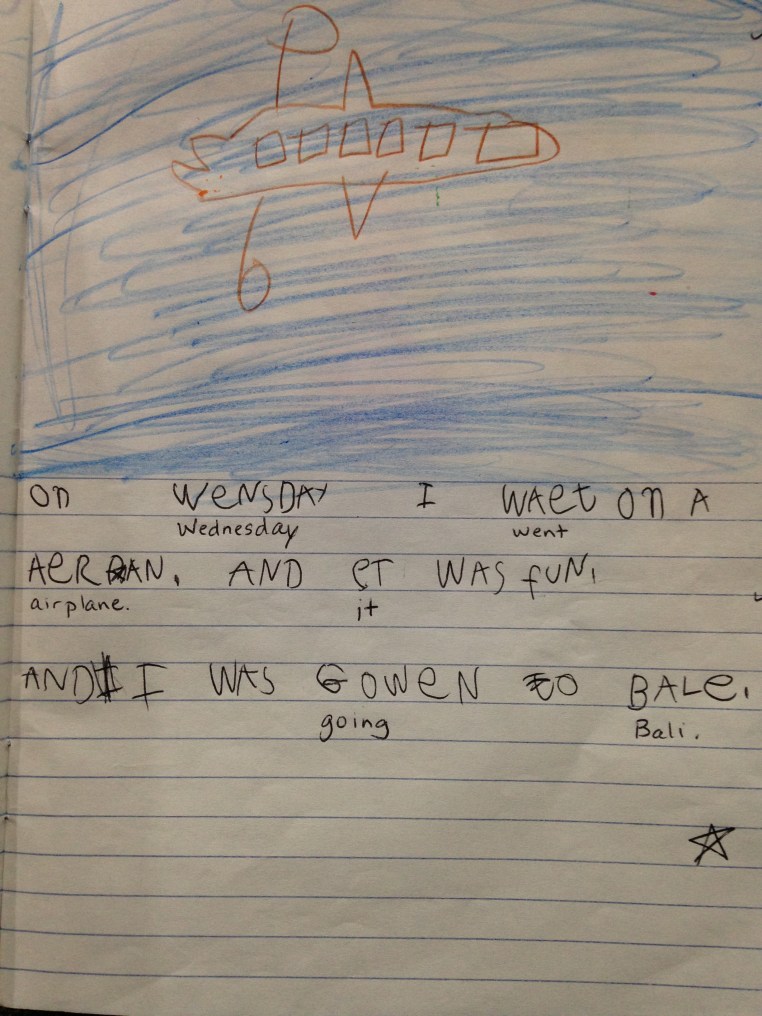 On WeNSDAY I WAet On A
Wednesday went
AeRPAN. AND eT WAS fUN.
airplane. it
AND I WAS GOWeN to BALe.
going Bali.